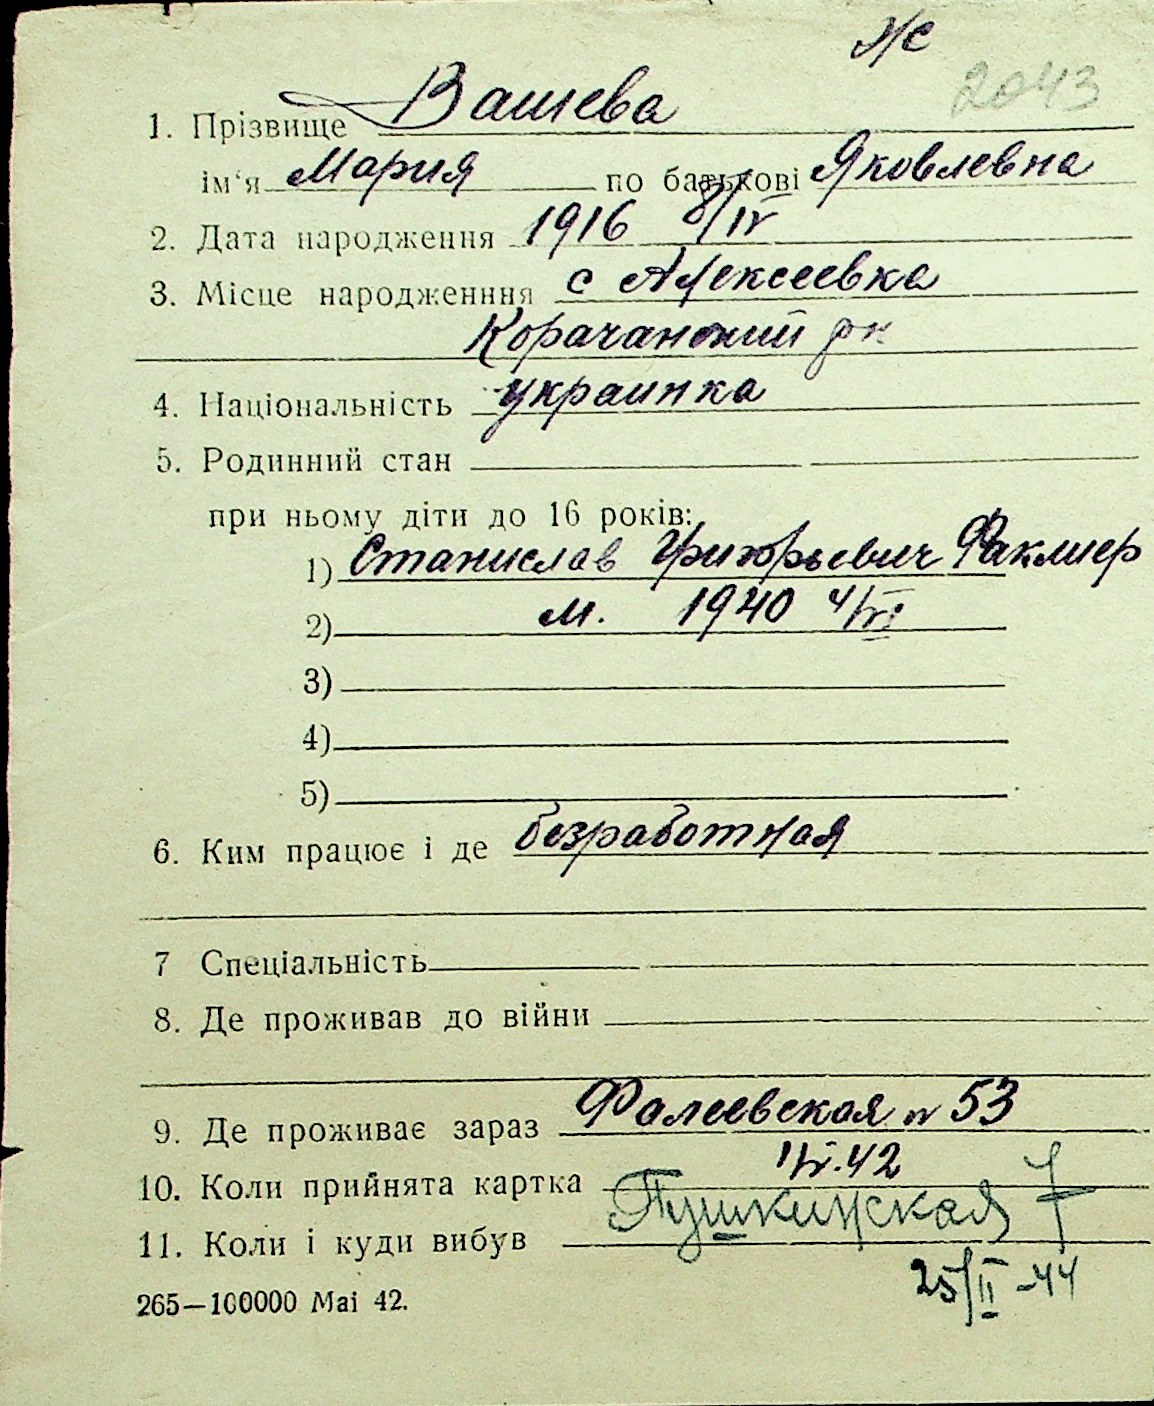 2043
1. Прізвище Вашева
ім'я Мария по батькові Яковлевна
2. Дата народження 1916 8/IV
3. Місце народженння с Алексеевка
Корачанский рн
4. Національність украинка
5. Родинний стан
при ньому діти до 16 років:
1) Станислав Григорьевич Факлиер
2) м. 1940 4/VI
3)
4)
5)
6. Ким працює і де безработная
7 Спеціальність
8. Де проживав до війни
9. Де проживає зараз Фалеевская 53
10. Коли прийнята картка 42
11. Коли і куди вибув Пушкинская 7
25/II -44
265—100000 Mai 42.